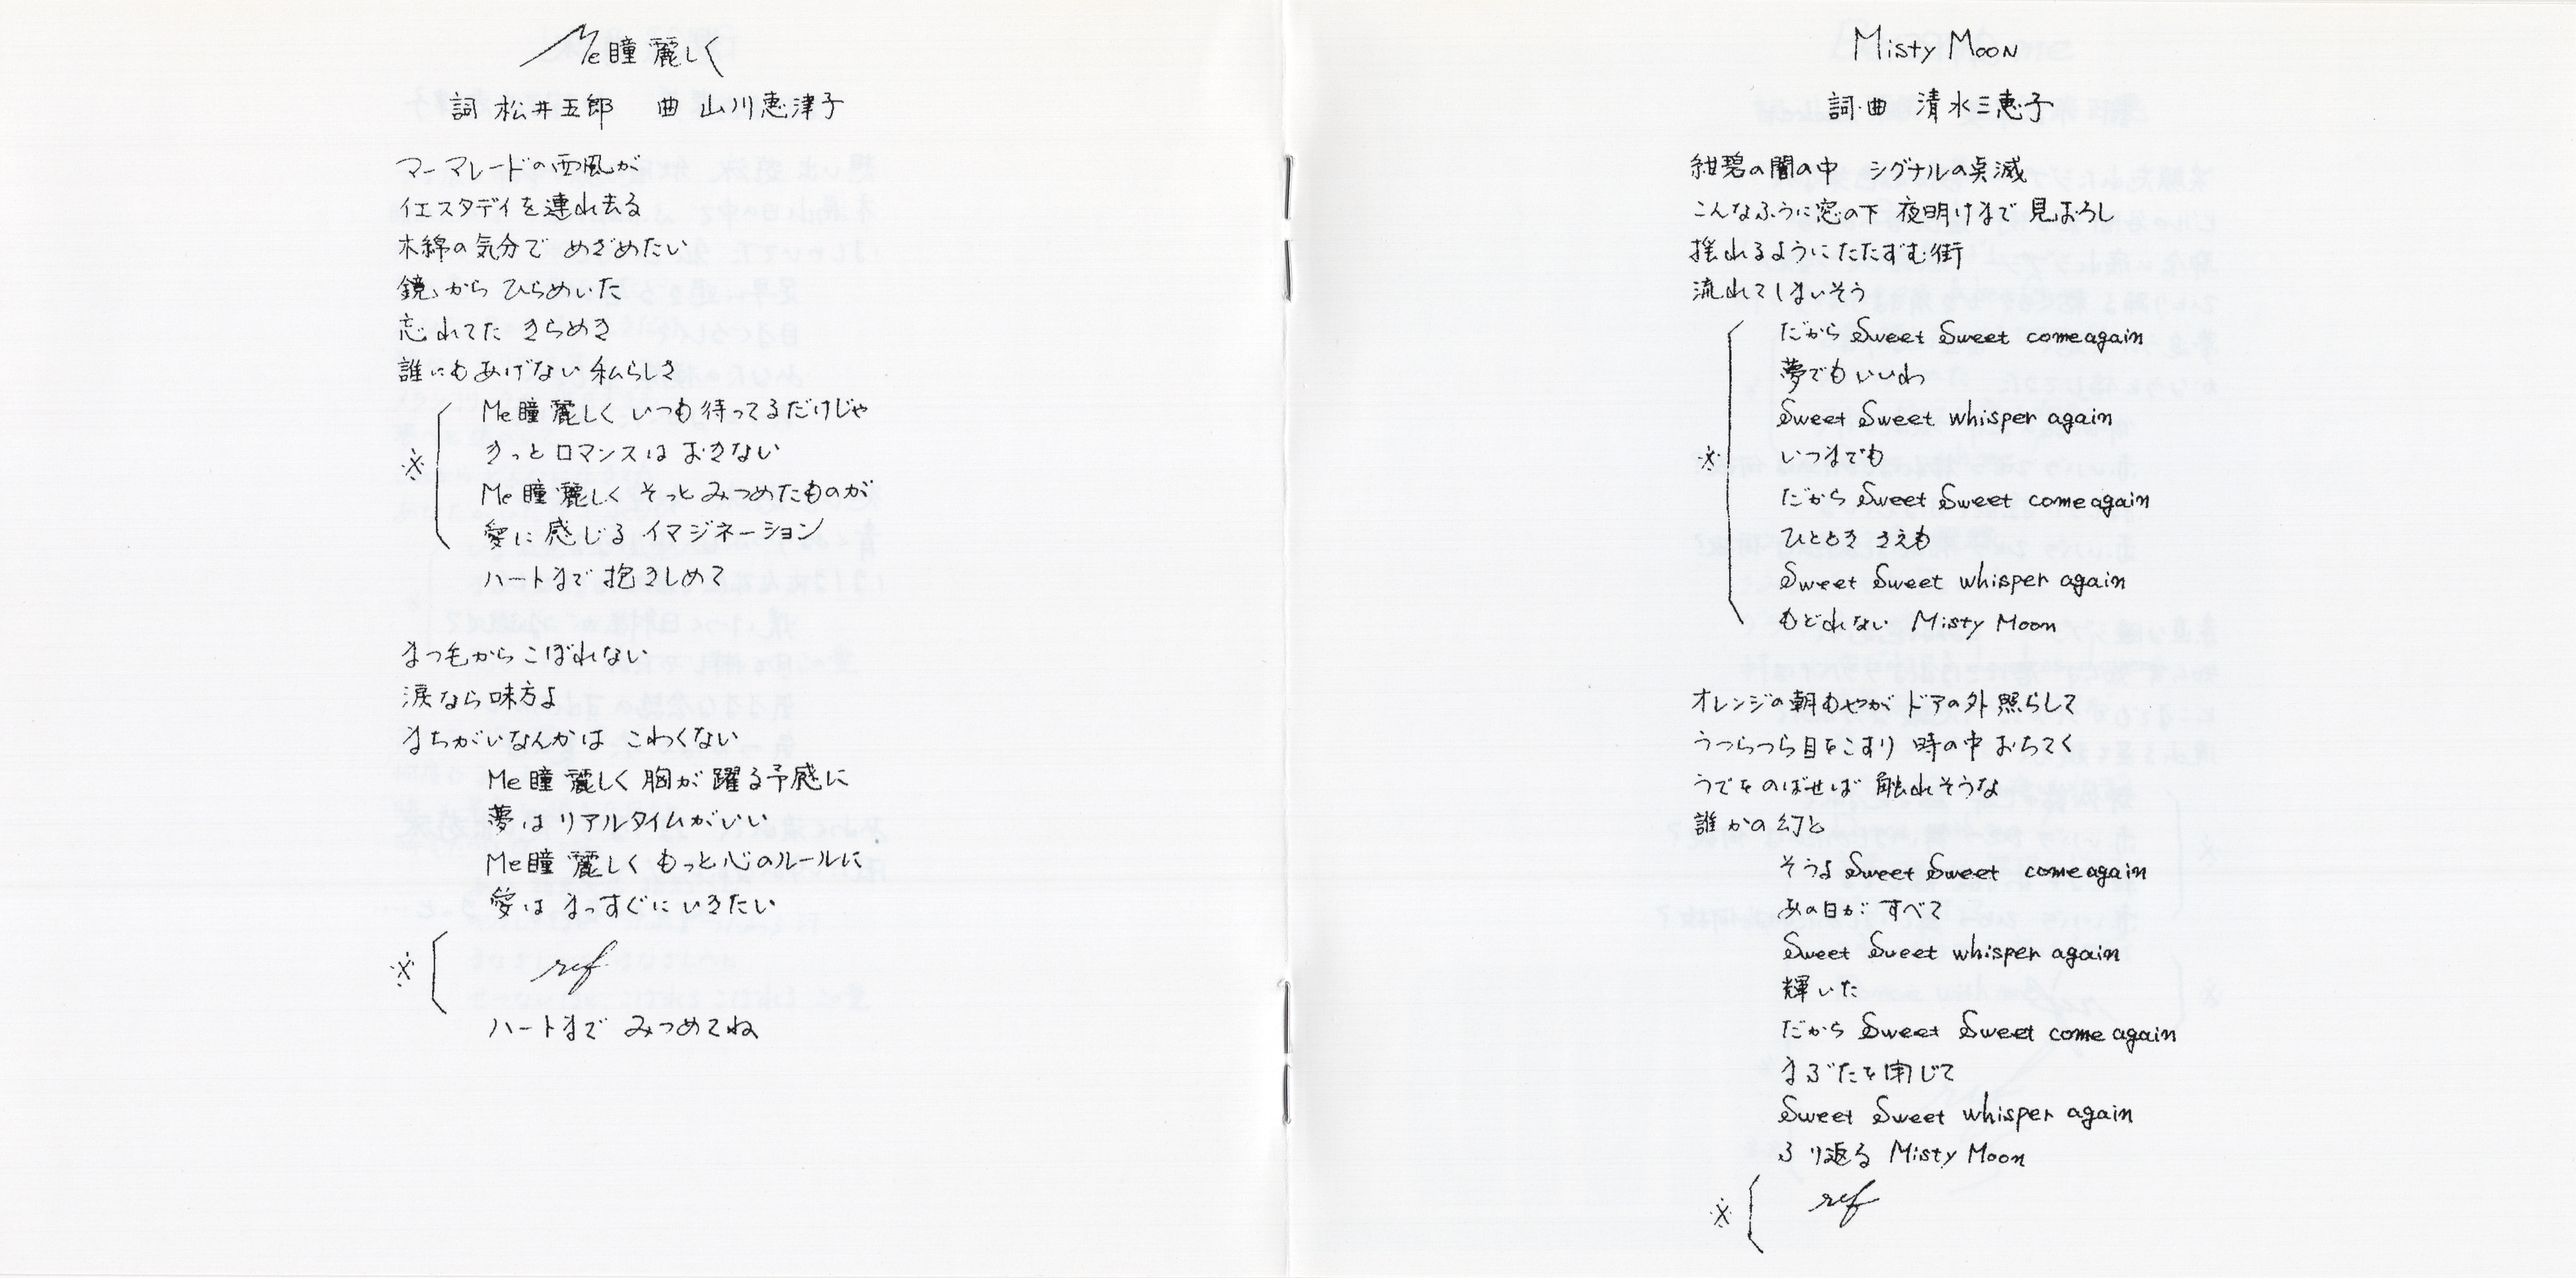 Me瞳麗しく
詞 松井五郎 曲 山川恵津子
マーマレードの西風が
イエスタデイを連れ去る
木綿の気分で めざめたい
鏡から ひらめいた
忘れてた きらめき
誰にもあげない 私らしさ
※
Me瞳麗しく いつも待ってるだけじゃ
きっとロマンスは おきない
Me瞳麗しく そっとみつめたものが
愛に感じる イマジネーション
ハートまで 抱きしめて
まつ毛からこぼれない
涙なら味方よ
まちがいなんかは こわくない
Me瞳麗しく 胸が躍る予感に
夢は リアルタイムがいい
Me瞳麗しく もっと心のルールに
愛は まっすぐに いきたい
※ ref
ハートまで みつめてね
Misty Moon
詞・曲 清水三恵子
紺碧の闇の中 シグナルの点滅
こんなふうに窓の下 夜明けまで 見おろし
揺れるように たたずむ街
流れてしまいそう
だから Sweet Sweet come again
夢でもいいわ
Sweet Sweet whisper again
※
いつまでも
だから Sweet Sweet come again
ひととき さえも
Sweet Sweet whisper again
もどれない Misty Moon
オレンジの朝もやが ドアの外 照らして
うつらつら目をこすり 時の中 おちてく
うでをのばせば 触れそうな
誰かの幻と
そうよ Sweet Sweet come again
あの日が すべて
Sweet Sweet whisper again
輝いた
だから Sweet Sweet come again
まぶたを閉じて
Sweet Sweet whisper again
ふり返る Misty Moon
※ ref